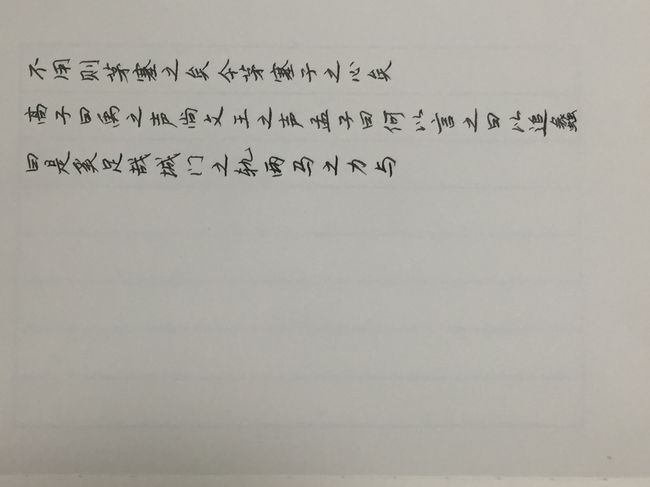 不用则茅塞之矣今茅塞子之心矣
高子曰禹之声尚文王之声孟子曰何以言之曰以追蠡
曰是奚足哉城门之轨两马之力与